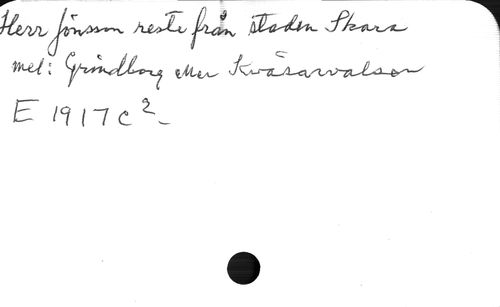 Herr Jönsson reste från staden Skara
mel: Grindborg eller Kvasarvalsen
E 1917 c 2